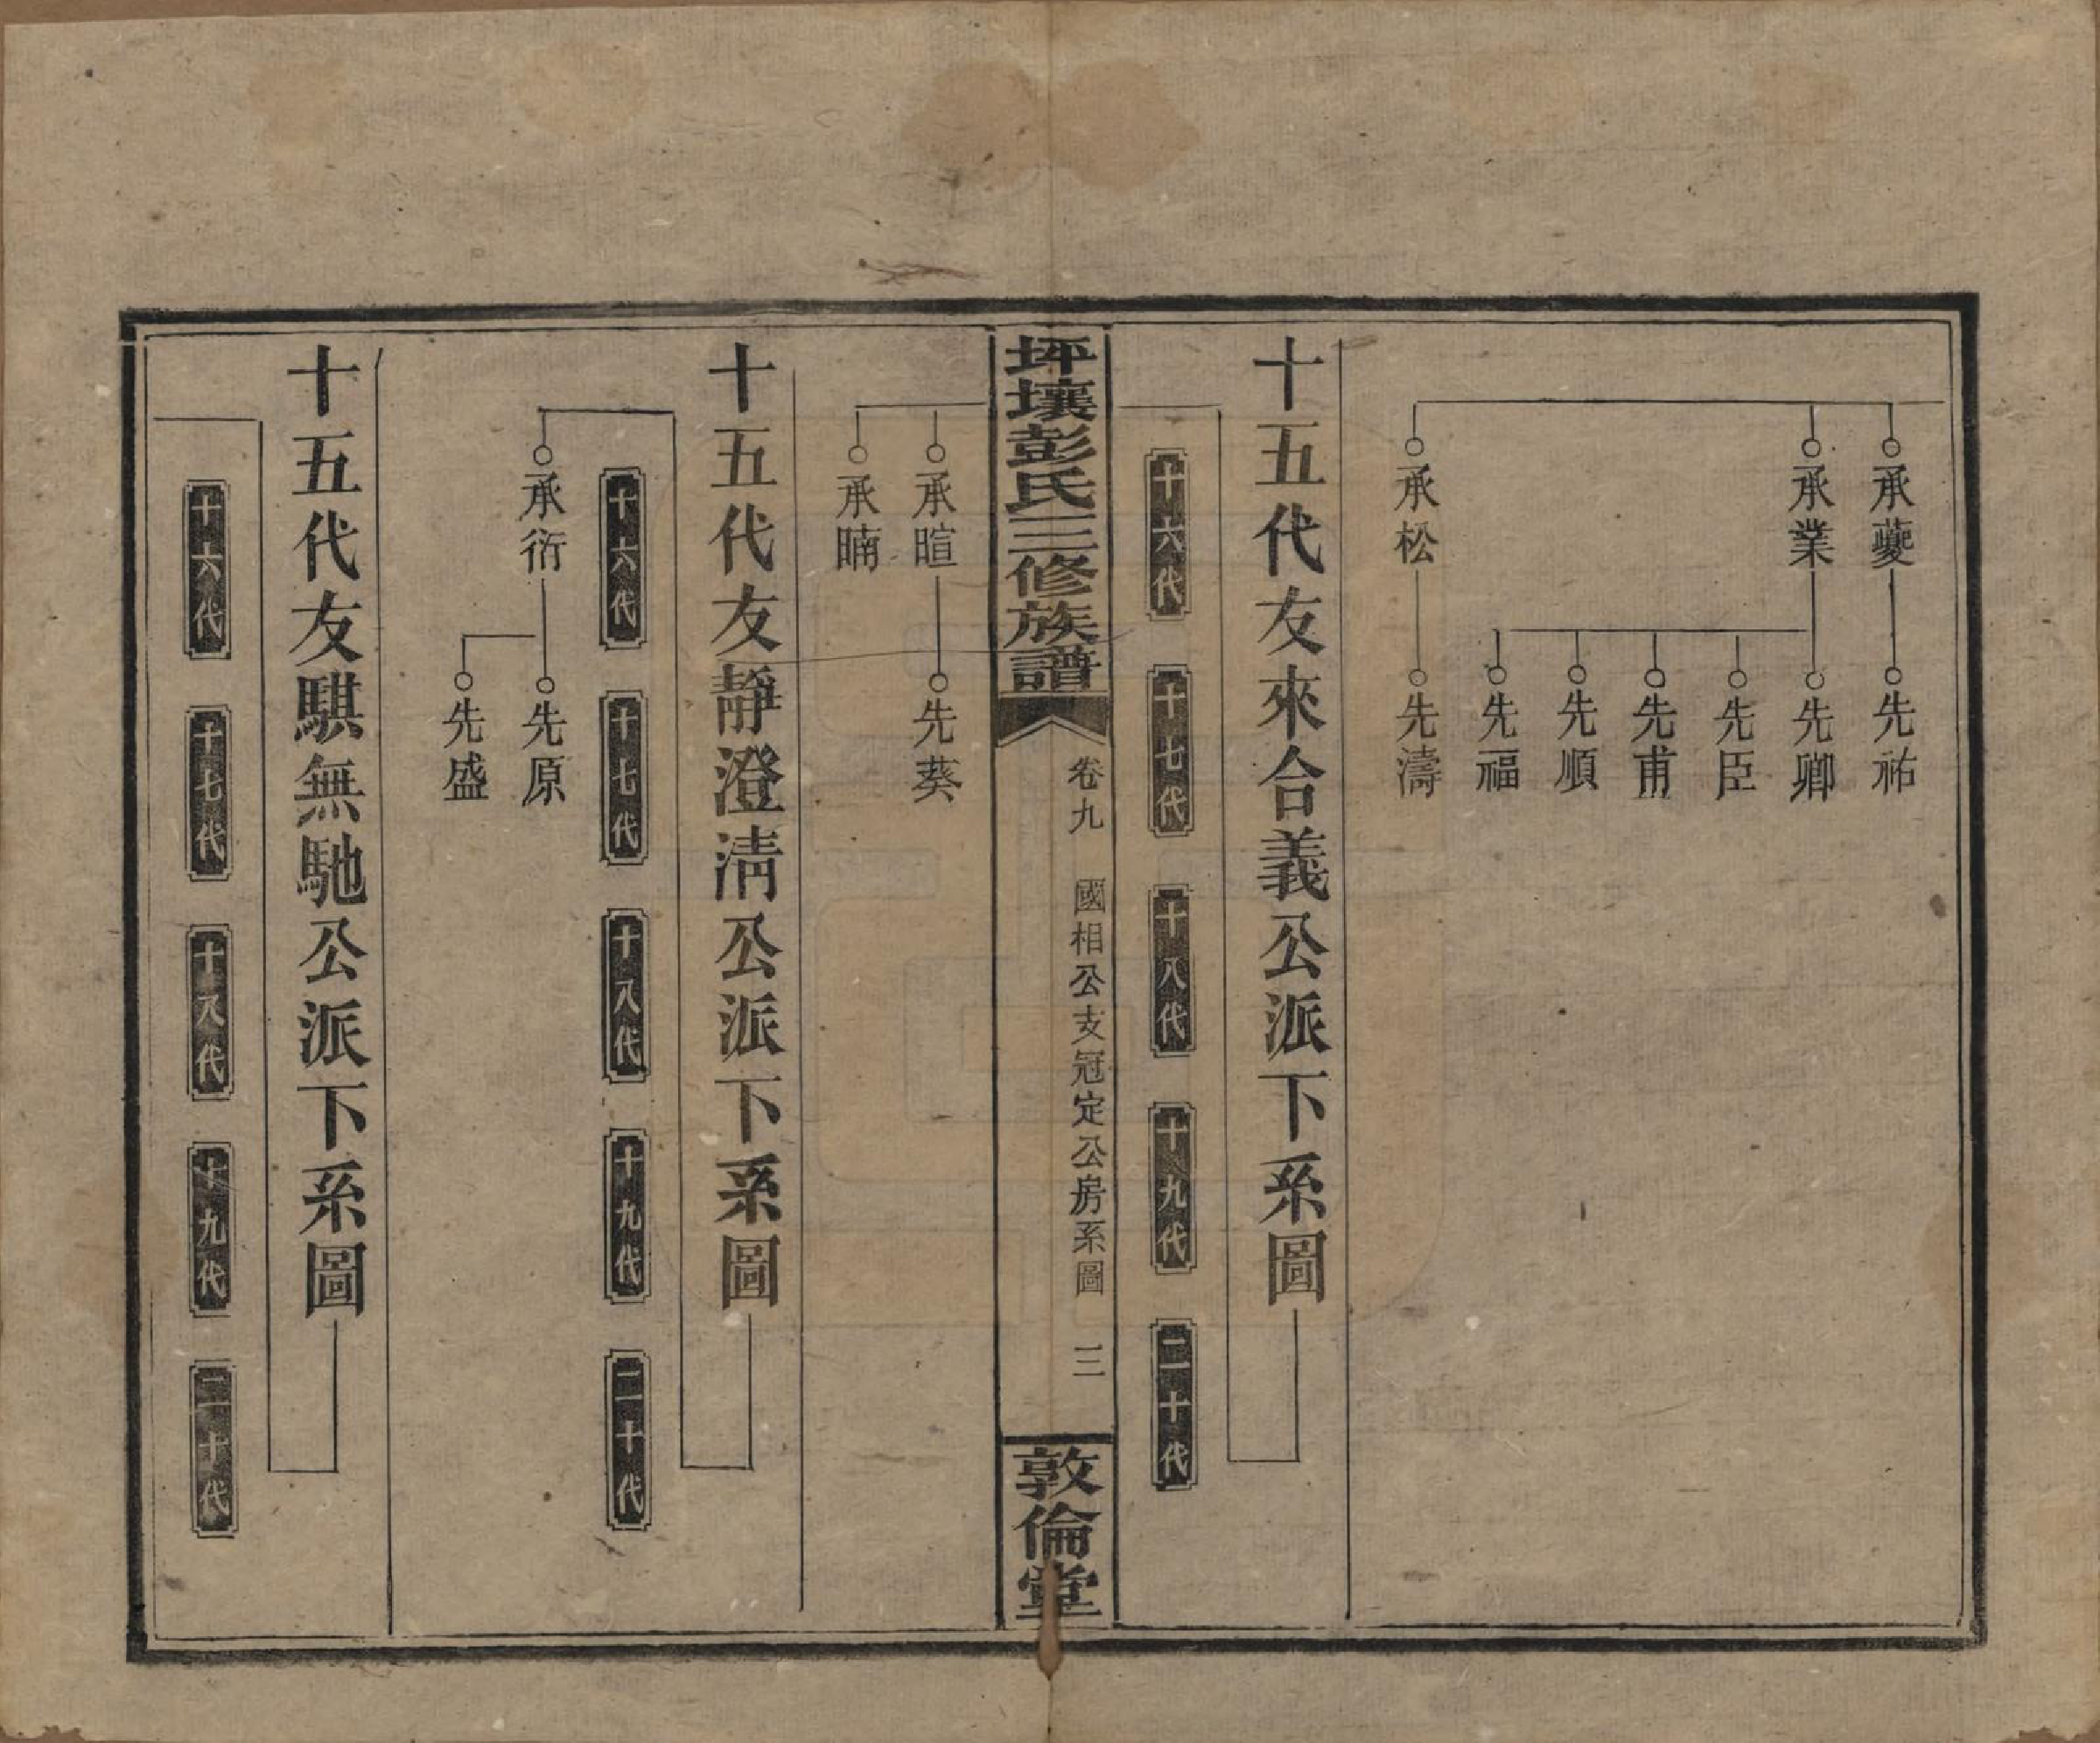 承夔
先祐
承業
先卿
先臣
先甫
先順
先福
承松
先濤
十五代友來合義公派下系圖
十六代
十七代
十八代
十九代
二十代
坪壤彭氏三修族譜
卷九
國相公支冠定公房系圖
三
敦倫堂
承暄
先葵
承暔
十五代友靜澄清公派下系圖
十六代
十七代
十八代
十九代
二十代
承衍
先原
先盛
十五代友騏無馳公派下系圖
十六代
十七代
十八代
十九代
二十代